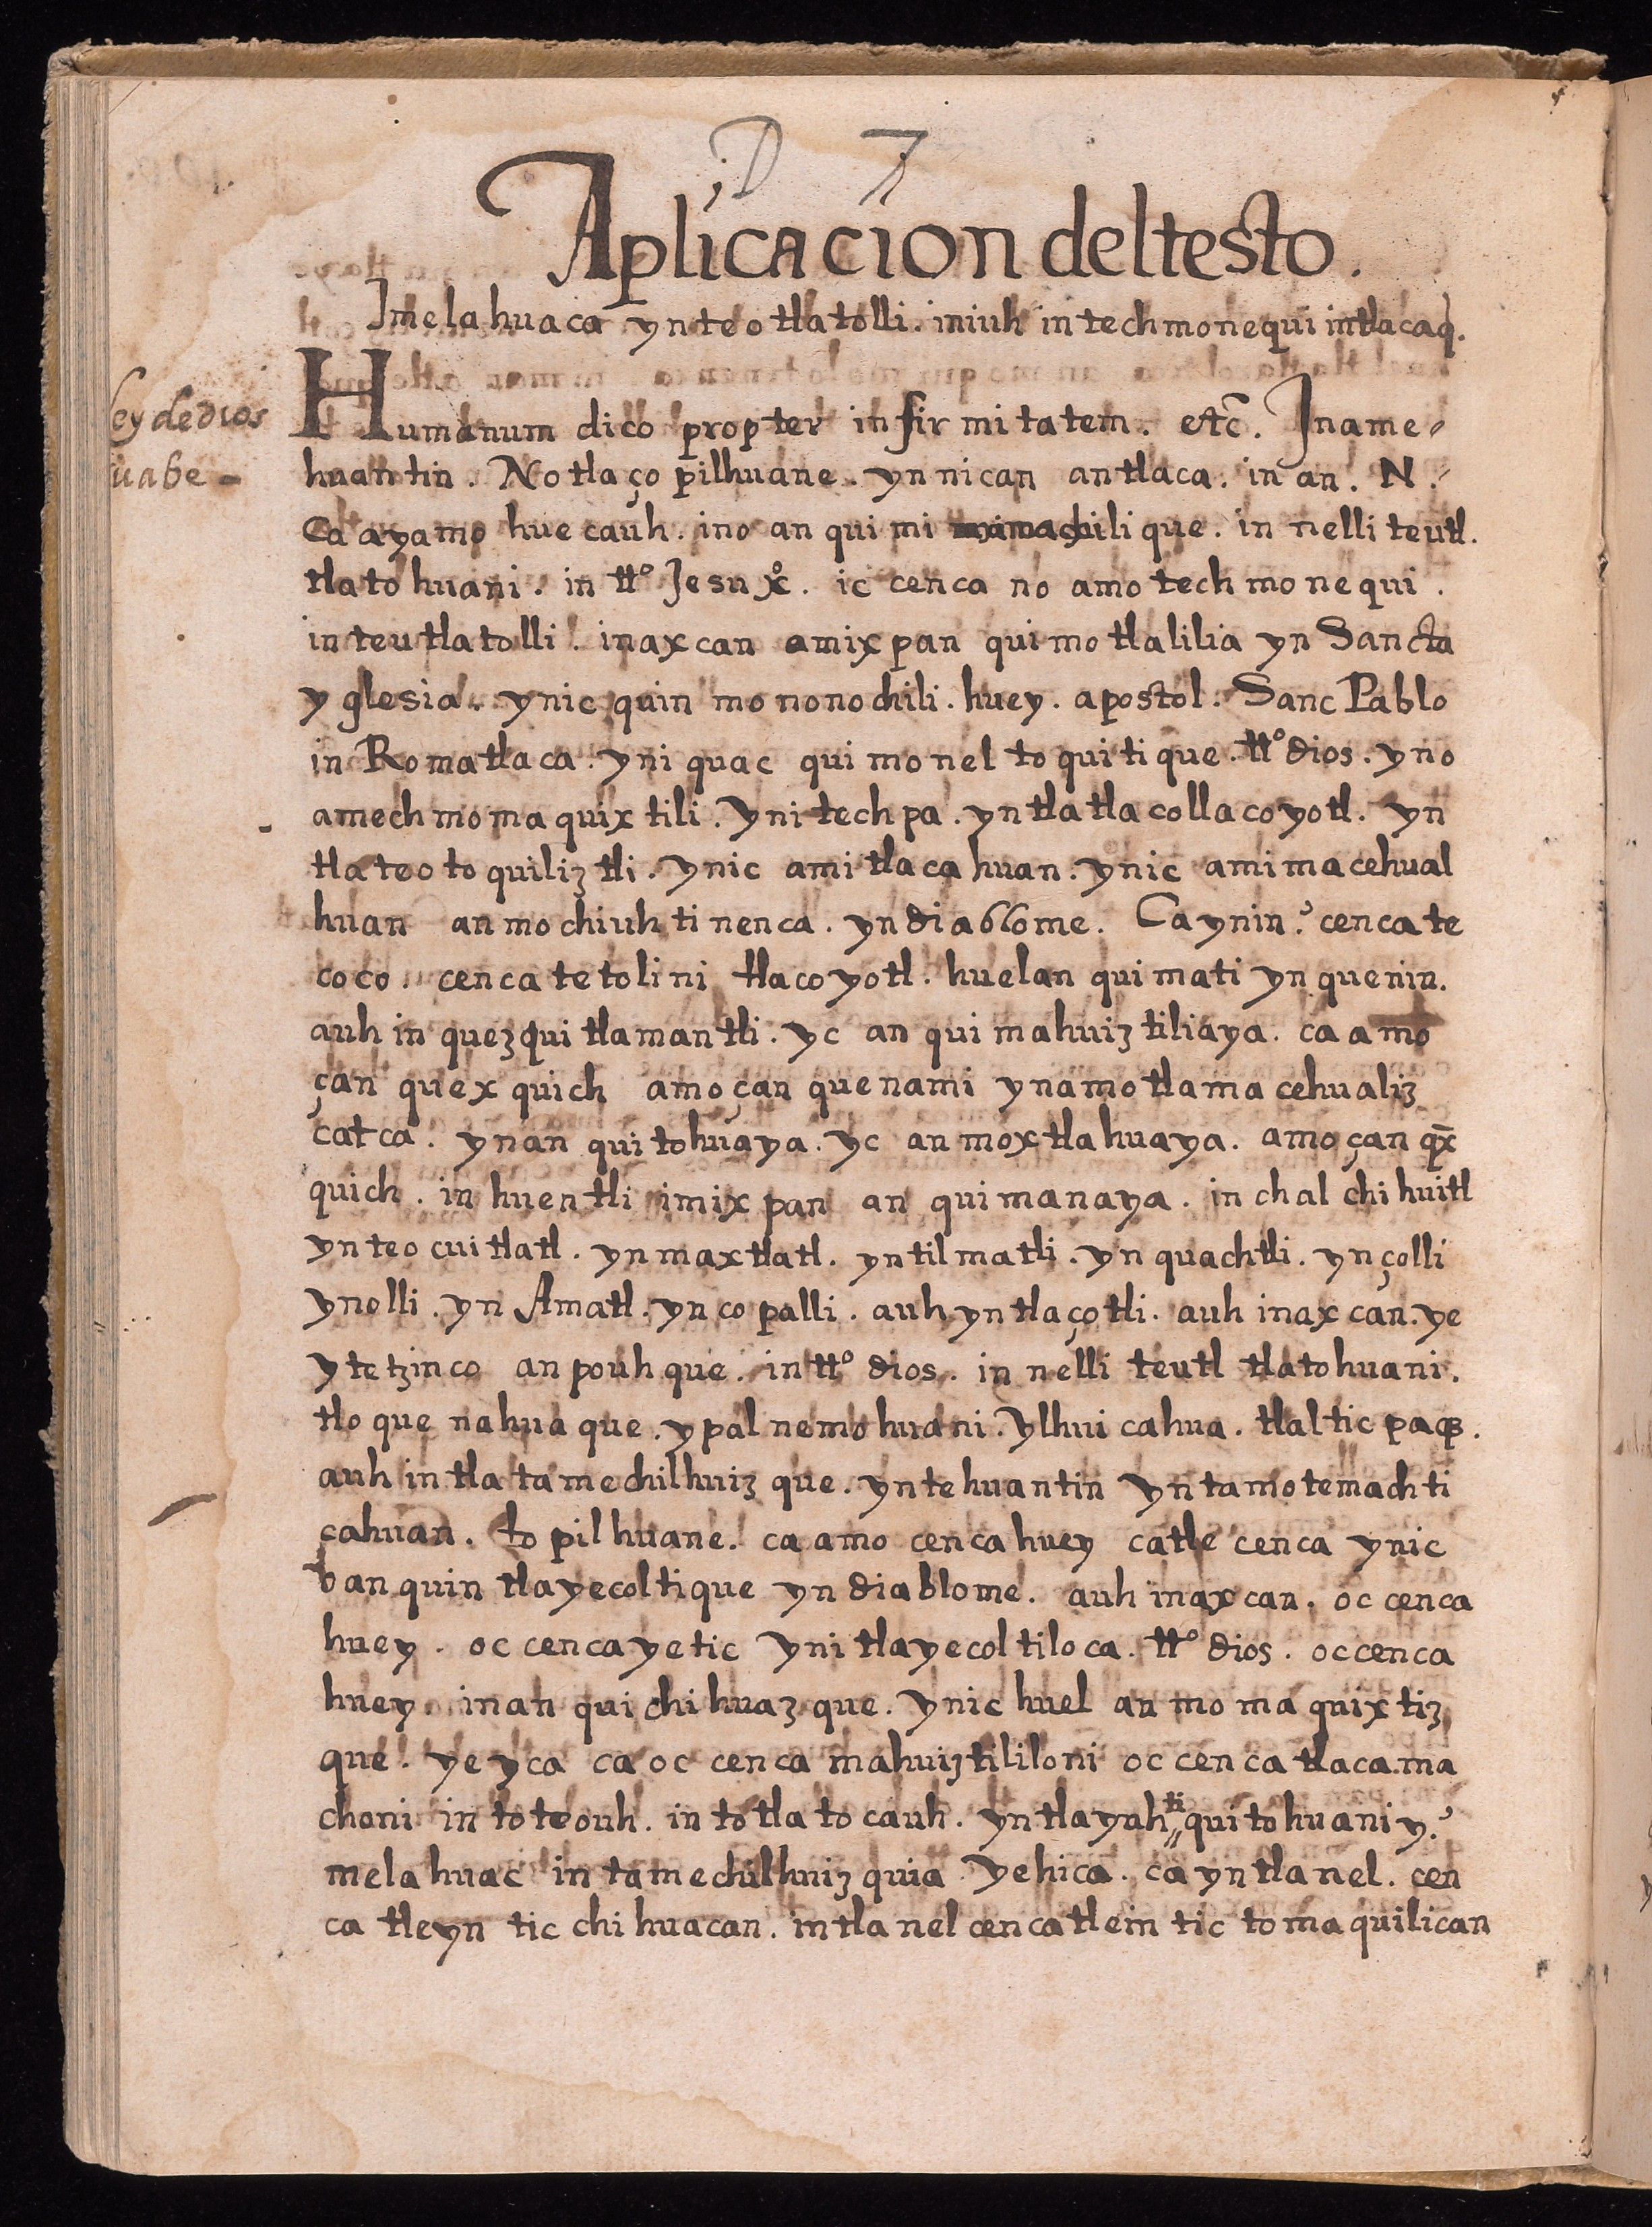 D 7
Aplicacion deltesto.
Imelahuaca ynteotlatolli. iniuh intechmonequi intlacaq̃.
ley de dios
suabe -
Humanum dico propter infirmitatem. etc̃. Iname-
huantin. Notlaço pilhuane. yn nican antlaca. in an. N.
Ca ayamo huecauh. ino anquimi machilique. in nelli teutl.
tlatohuani. in tt.º Jesu xº. ic cenca no amotechmonequi.
inteutlatolli. inaxcan amixpan quimotlalilia yn Sancta
yglesia. ynic quinmononochili. huey. apostol. Sanc Pablo
in Romatlaca. yniquac quimoneltoquitique. ttº dios. yno
amechmomaquixtili. Ynitechpa. yntlatlacollacoyotl. yn
tlateotoquiliztli. ynic amitlacahuan. ynic amimacehual
huan anmochiuhtinenca. yn diablome. Ca ynin? cencate
coco. cenca tetolini tlacoyotl. huelanquimati yn quenin.
auh in quezquitlamantli. yc anquimahuiztiliaya. ca amo
çan quexquich amo çan quenami ynamotlamacehualiz
catca. ynanquitohuaya. yc anmoxtlahuaya. amo çan q̃x
quich. in huentli imixpan anquimanaya. in chalchihuitl
ynteocuitlatl. ynmaxtlatl. yntilmatli. yn quachtli. ynçolli
ynolli. yn Amatl. yn copalli. auh yntlaçotli. auh inaxcan. ye
ytetzinco anpouhque. in ttº dios. in nelli teutl tlatohuani.
tloque nahuaque. ypalnemohuani. ylhuicahua. tlalticpaqȝ.
auh intla tamechilhuizque. yntehuantin yntamotemachti
cahuan. topilhuane. ca amo cencahuey catle cenca ynic
banquintlayecoltique yn diablome. auh inaxcan. oc cenca
huey. oc cencayetic ynitlayecoltiloca. ttº dios. occenca
huey. inanquichihuazque. ynic huel anmomaquixtiz
que. yeyca ca oc cenca mahuiztililoni oc cenca tlacama
choni in toteouh. in totlatocauh. yntlayuhti quitohuani y?
melahuac in tamechilhuizquia yehica. ca yntlanel. cen
ca tleyn ticchihuacan. intlanel cencatlein tictomaquilican